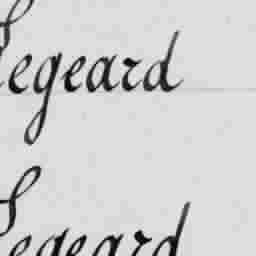 Legeard
Legeard